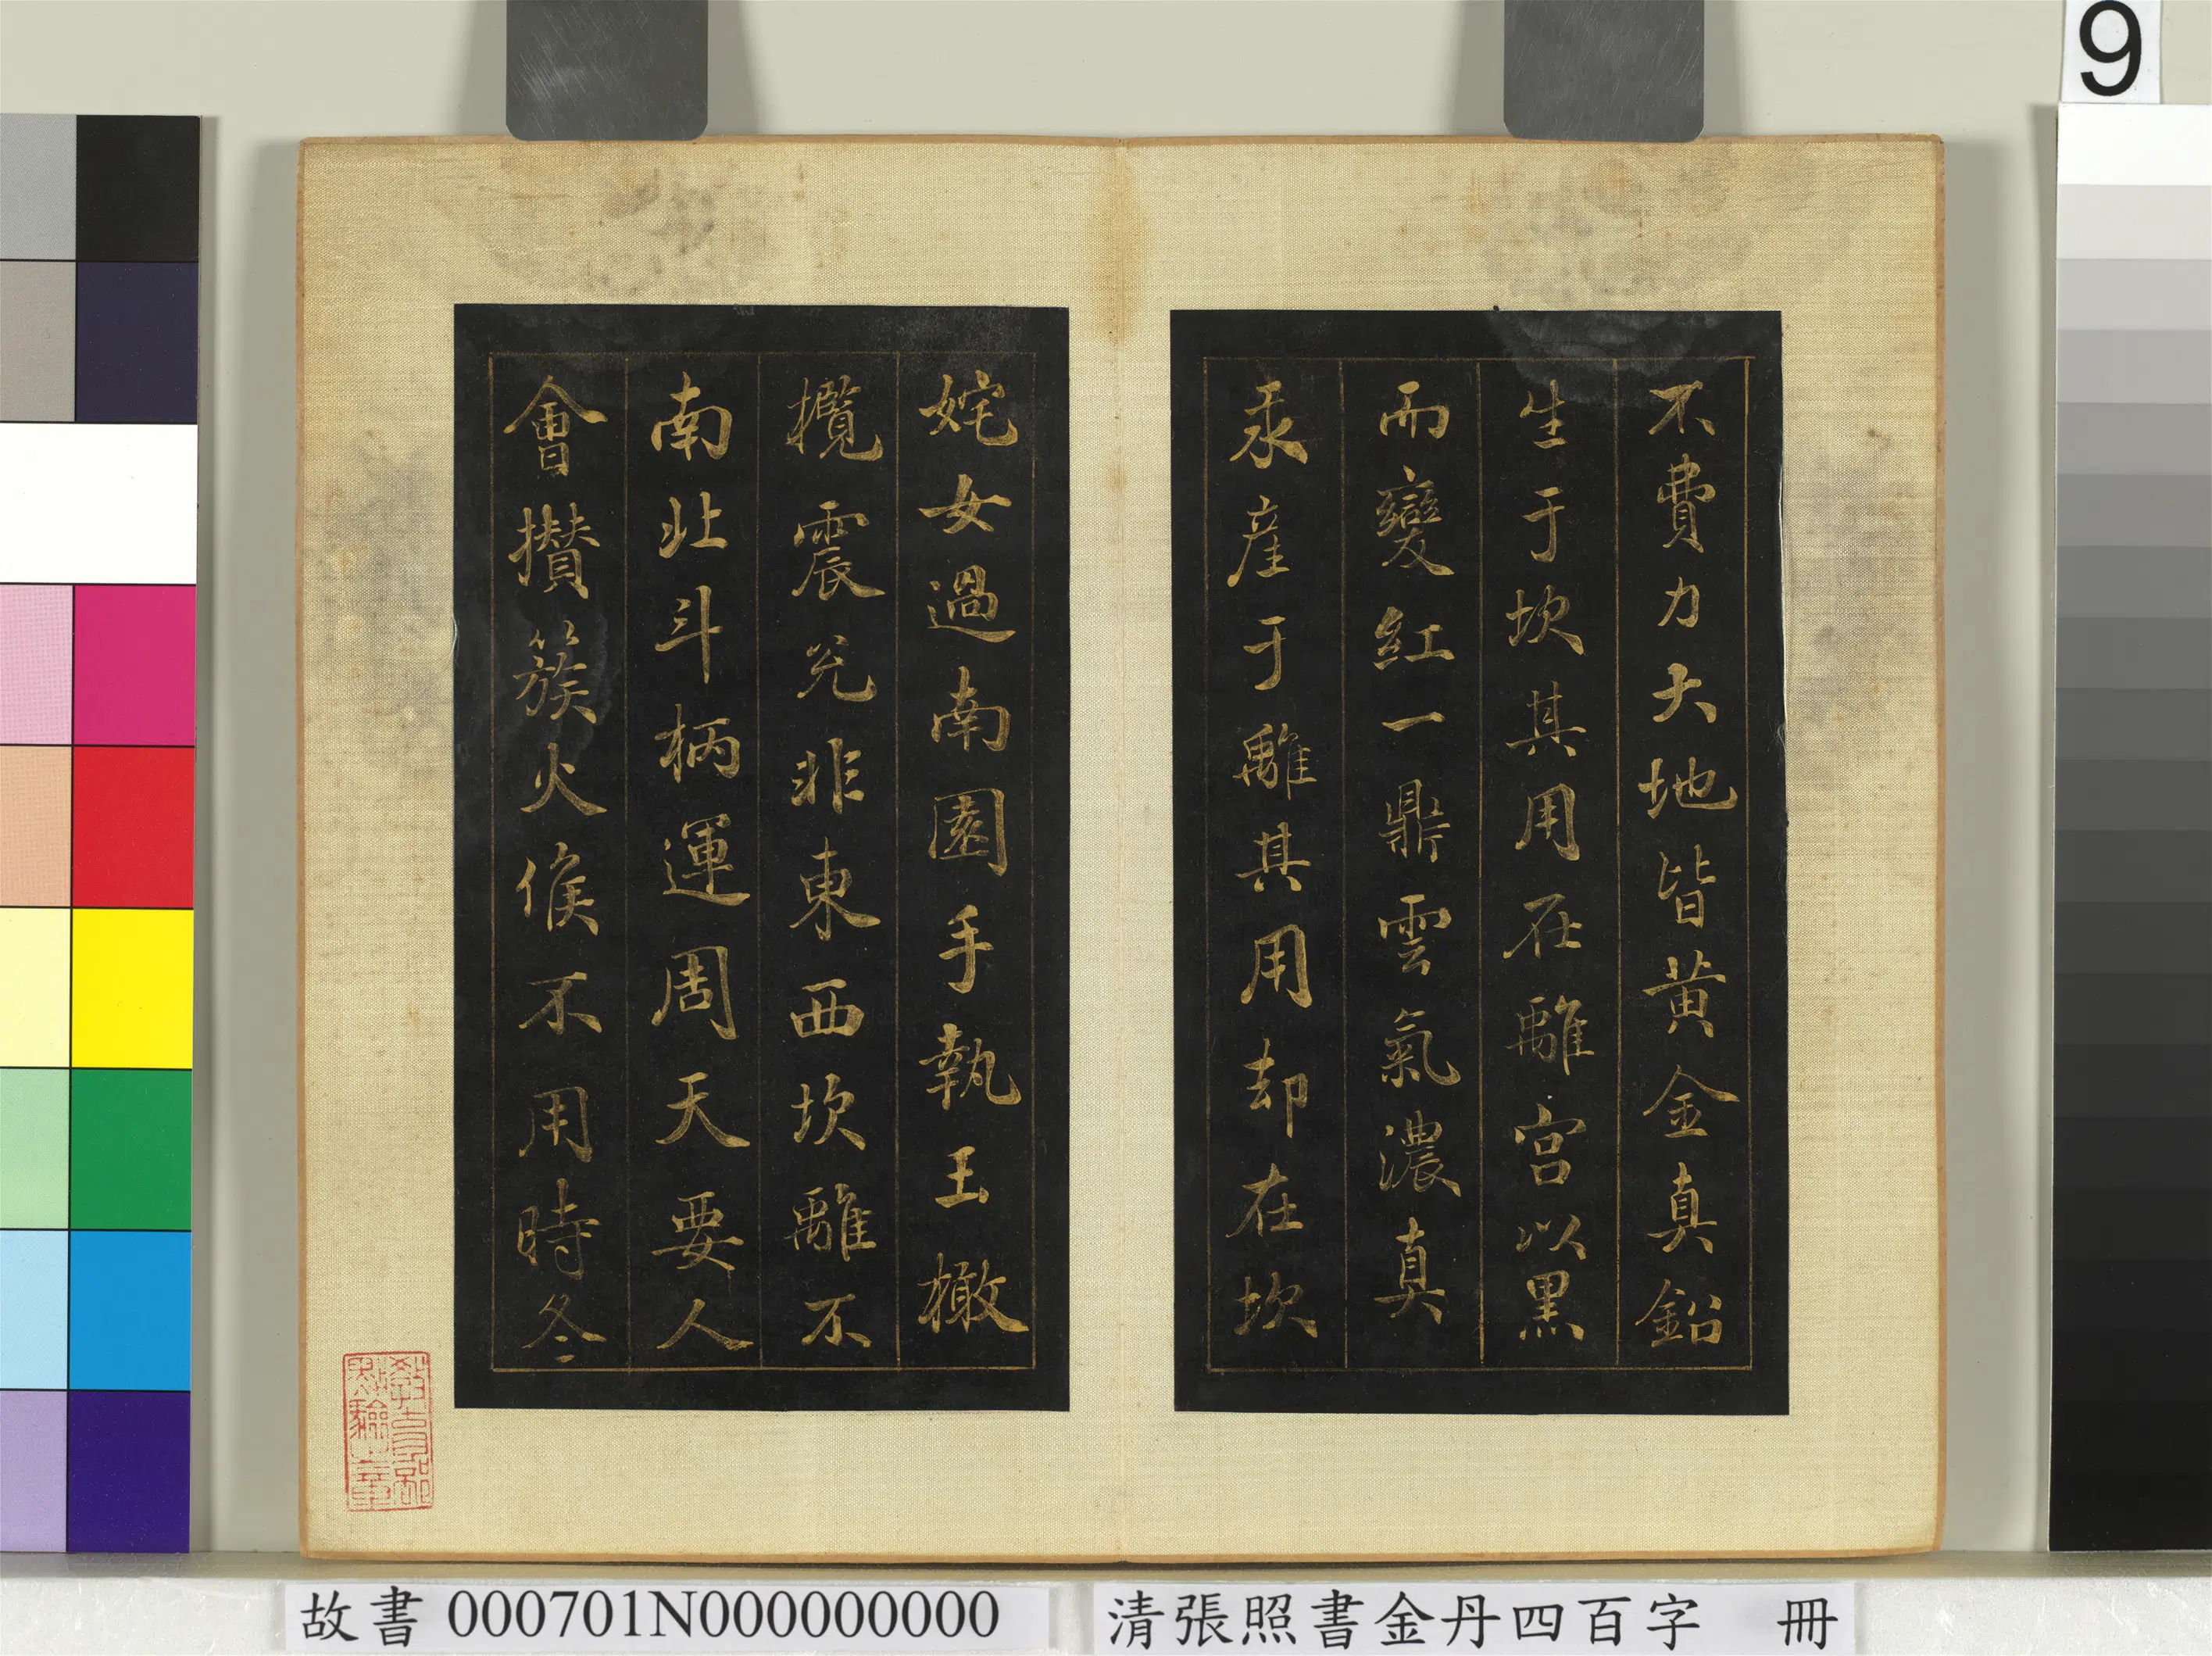 9
不費力大地皆黄金真鉛
生于坎其用在離宮以黑
而變紅一鼎雲氣濃真
汞産于離其用却在坎
姹女過南園手執玉橄
欖震兌非東西坎離不
南北斗柄運周天要人
會攅簇火候不用時冬
教育部
點驗之章
故書 000701N000000000
清張照書金丹四百字 冊